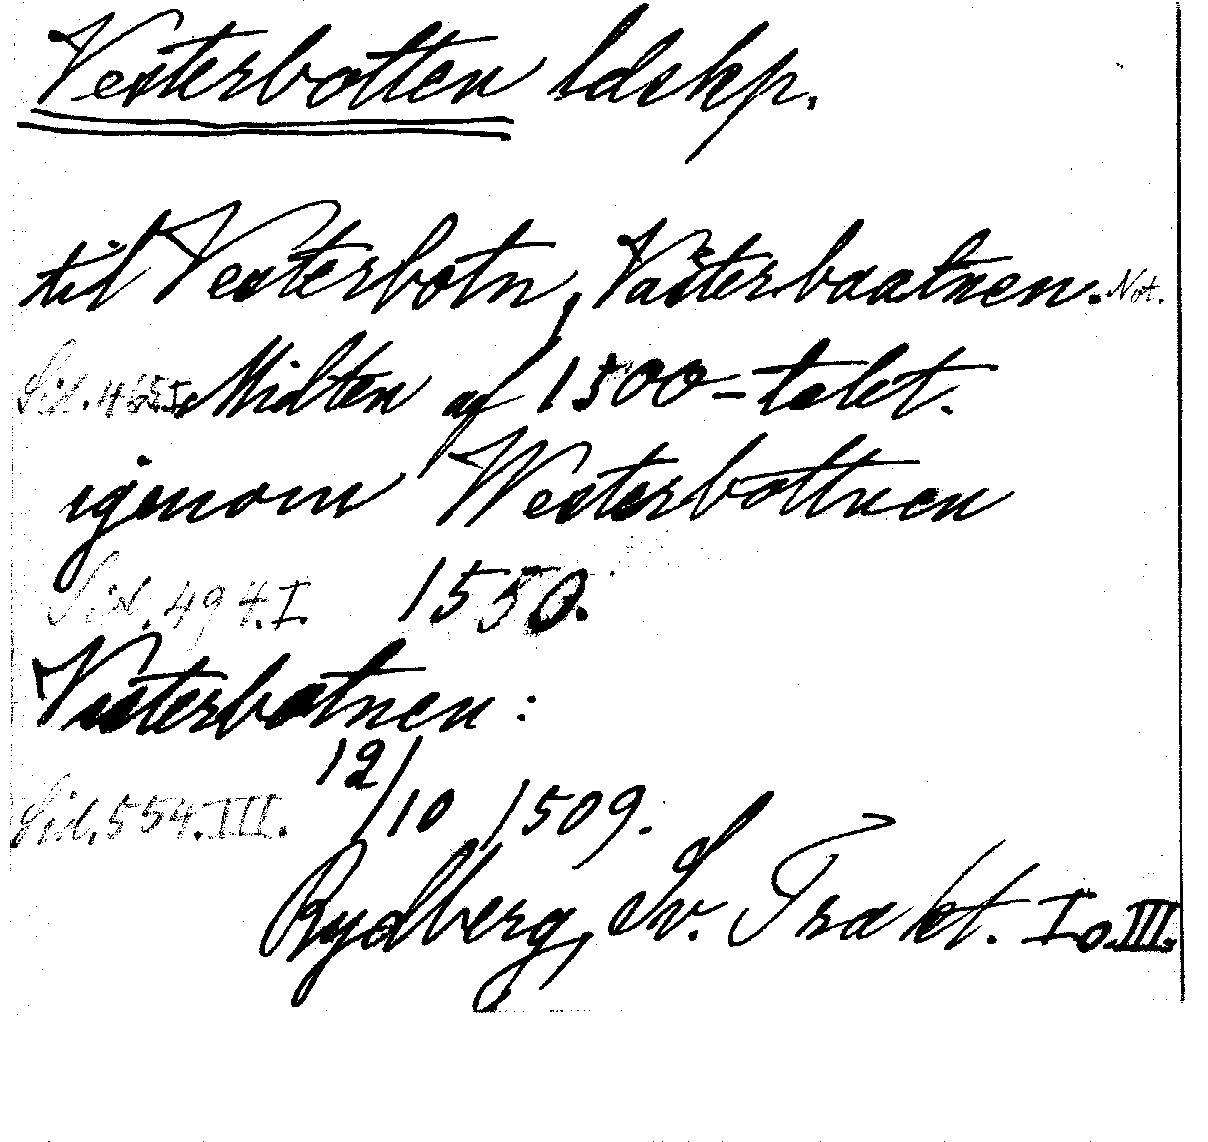 Vesterbotten ldskp.
til Vesterbotn, Västerbaatnen. Not.
Sid. 465 I. Midten af 1500-talet.
igenom Westerbottnen
Sid. 494. I. 1550.
Vesterbotnen:
Sid. 554. III. 12/10 1509.
Rydberg, Sv. Trakt. I o. III.